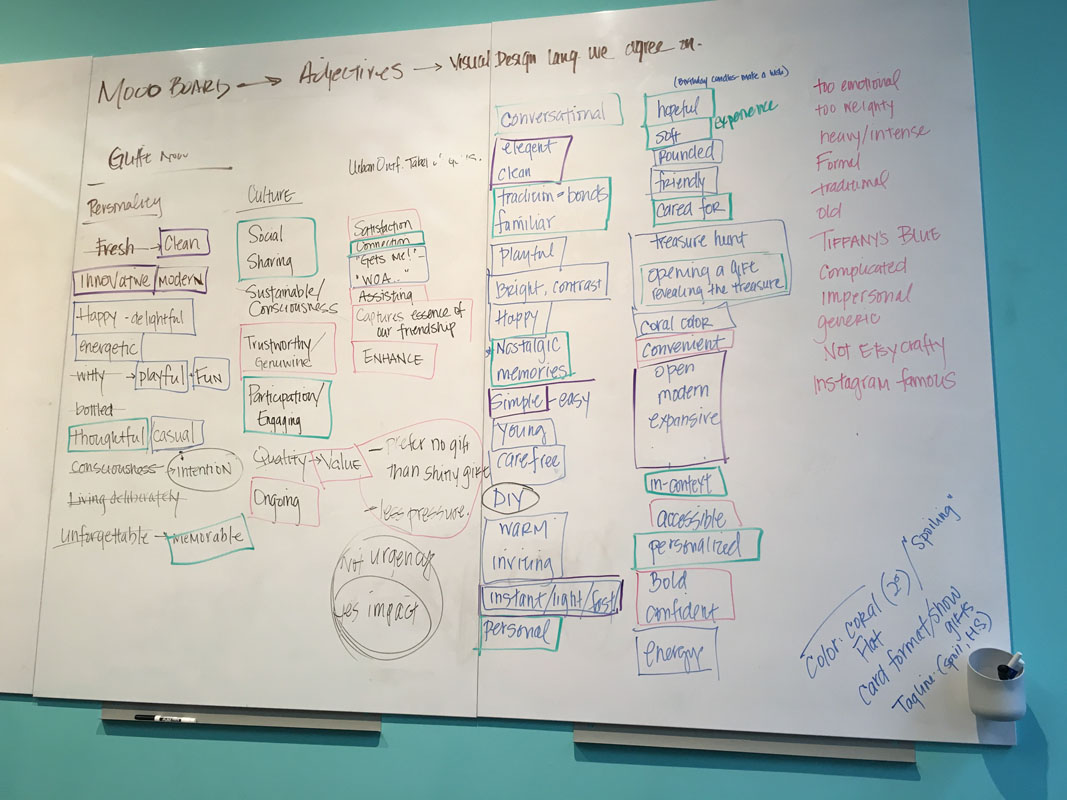 MOOD BOARD → ADJECTIVES → Visual Design Lang. we agree on.
Gift Now
Personality
Fresh → Clean
Innovative/modern
Happy - delightful
energetic
witty → playful · Fun
bottled
thoughtful casual
consciousness → intention
Living deliberately
unforgettable → memorable
Culture
Social
Sharing
Sustainable/
Consciousness
Trustworthy/
Genuwine
Participation/
Engaging
Quality → Value
Ongoing
Urban Outf.
Satisfaction
Connection
"Gets me!" –
"WOA..."
Assisting
Captures essence of
our friendship
ENHANCE
– prefer no gift
than shitty gift
– less pressure.
Not urgency
yes impact
conversational
elegent
clean
tradition = bonds
familiar
Playful
Bright, contrast
Happy
Nostalgic
memories
Simple – easy
Young
carefree
DIY
warm
inviting
instant/light/fast/
personal
(Birthday candles - make a wish)
hopeful
soft experience
rounded
friendly
cared for
treasure hunt
opening a gift
revealing the treasure
coral color
Convenient
open
modern
expansive
in-context
accessible
personalized
Bold
confident
energy
too emotional
too weighty
heavy/intense
Formal
traditional
old
TIFFANY'S BLUE
Complicated
impersonal
generic
Not Etsy crafty
Instagram famous
Color: Coral (2°) / "Spoiling"
Flat
Card format/show
gifts
Tagline - (spoil, HS)